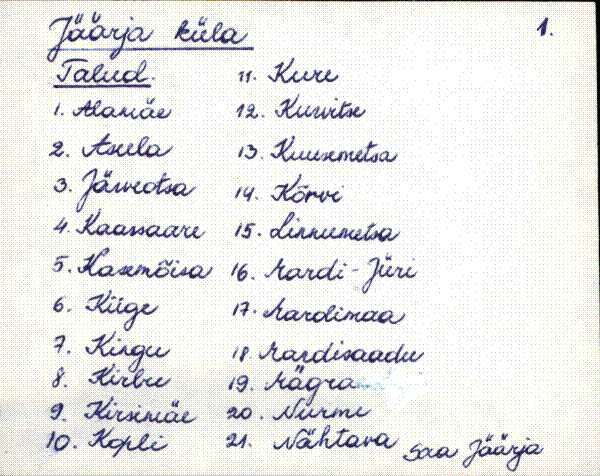 Jäärja küla
1.
Talud.
1. Alamäe
2. Asula
3. Järveotsa
4. Kaassaare
5. Kasemõisa
6. Kiige
7. Kingu
8. Kirbu
9. Kirsimäe
10. Kopli
11. Kure
12. Kurvitse
13. Kuusemetsa
14. Kõrvi
15. Linnumetsa
16. Mardi-Jüri
17. Mardimaa
18 Mardisaadu
19. Mägra
20. Nurme
21. Nähtava
Saa Jäärja